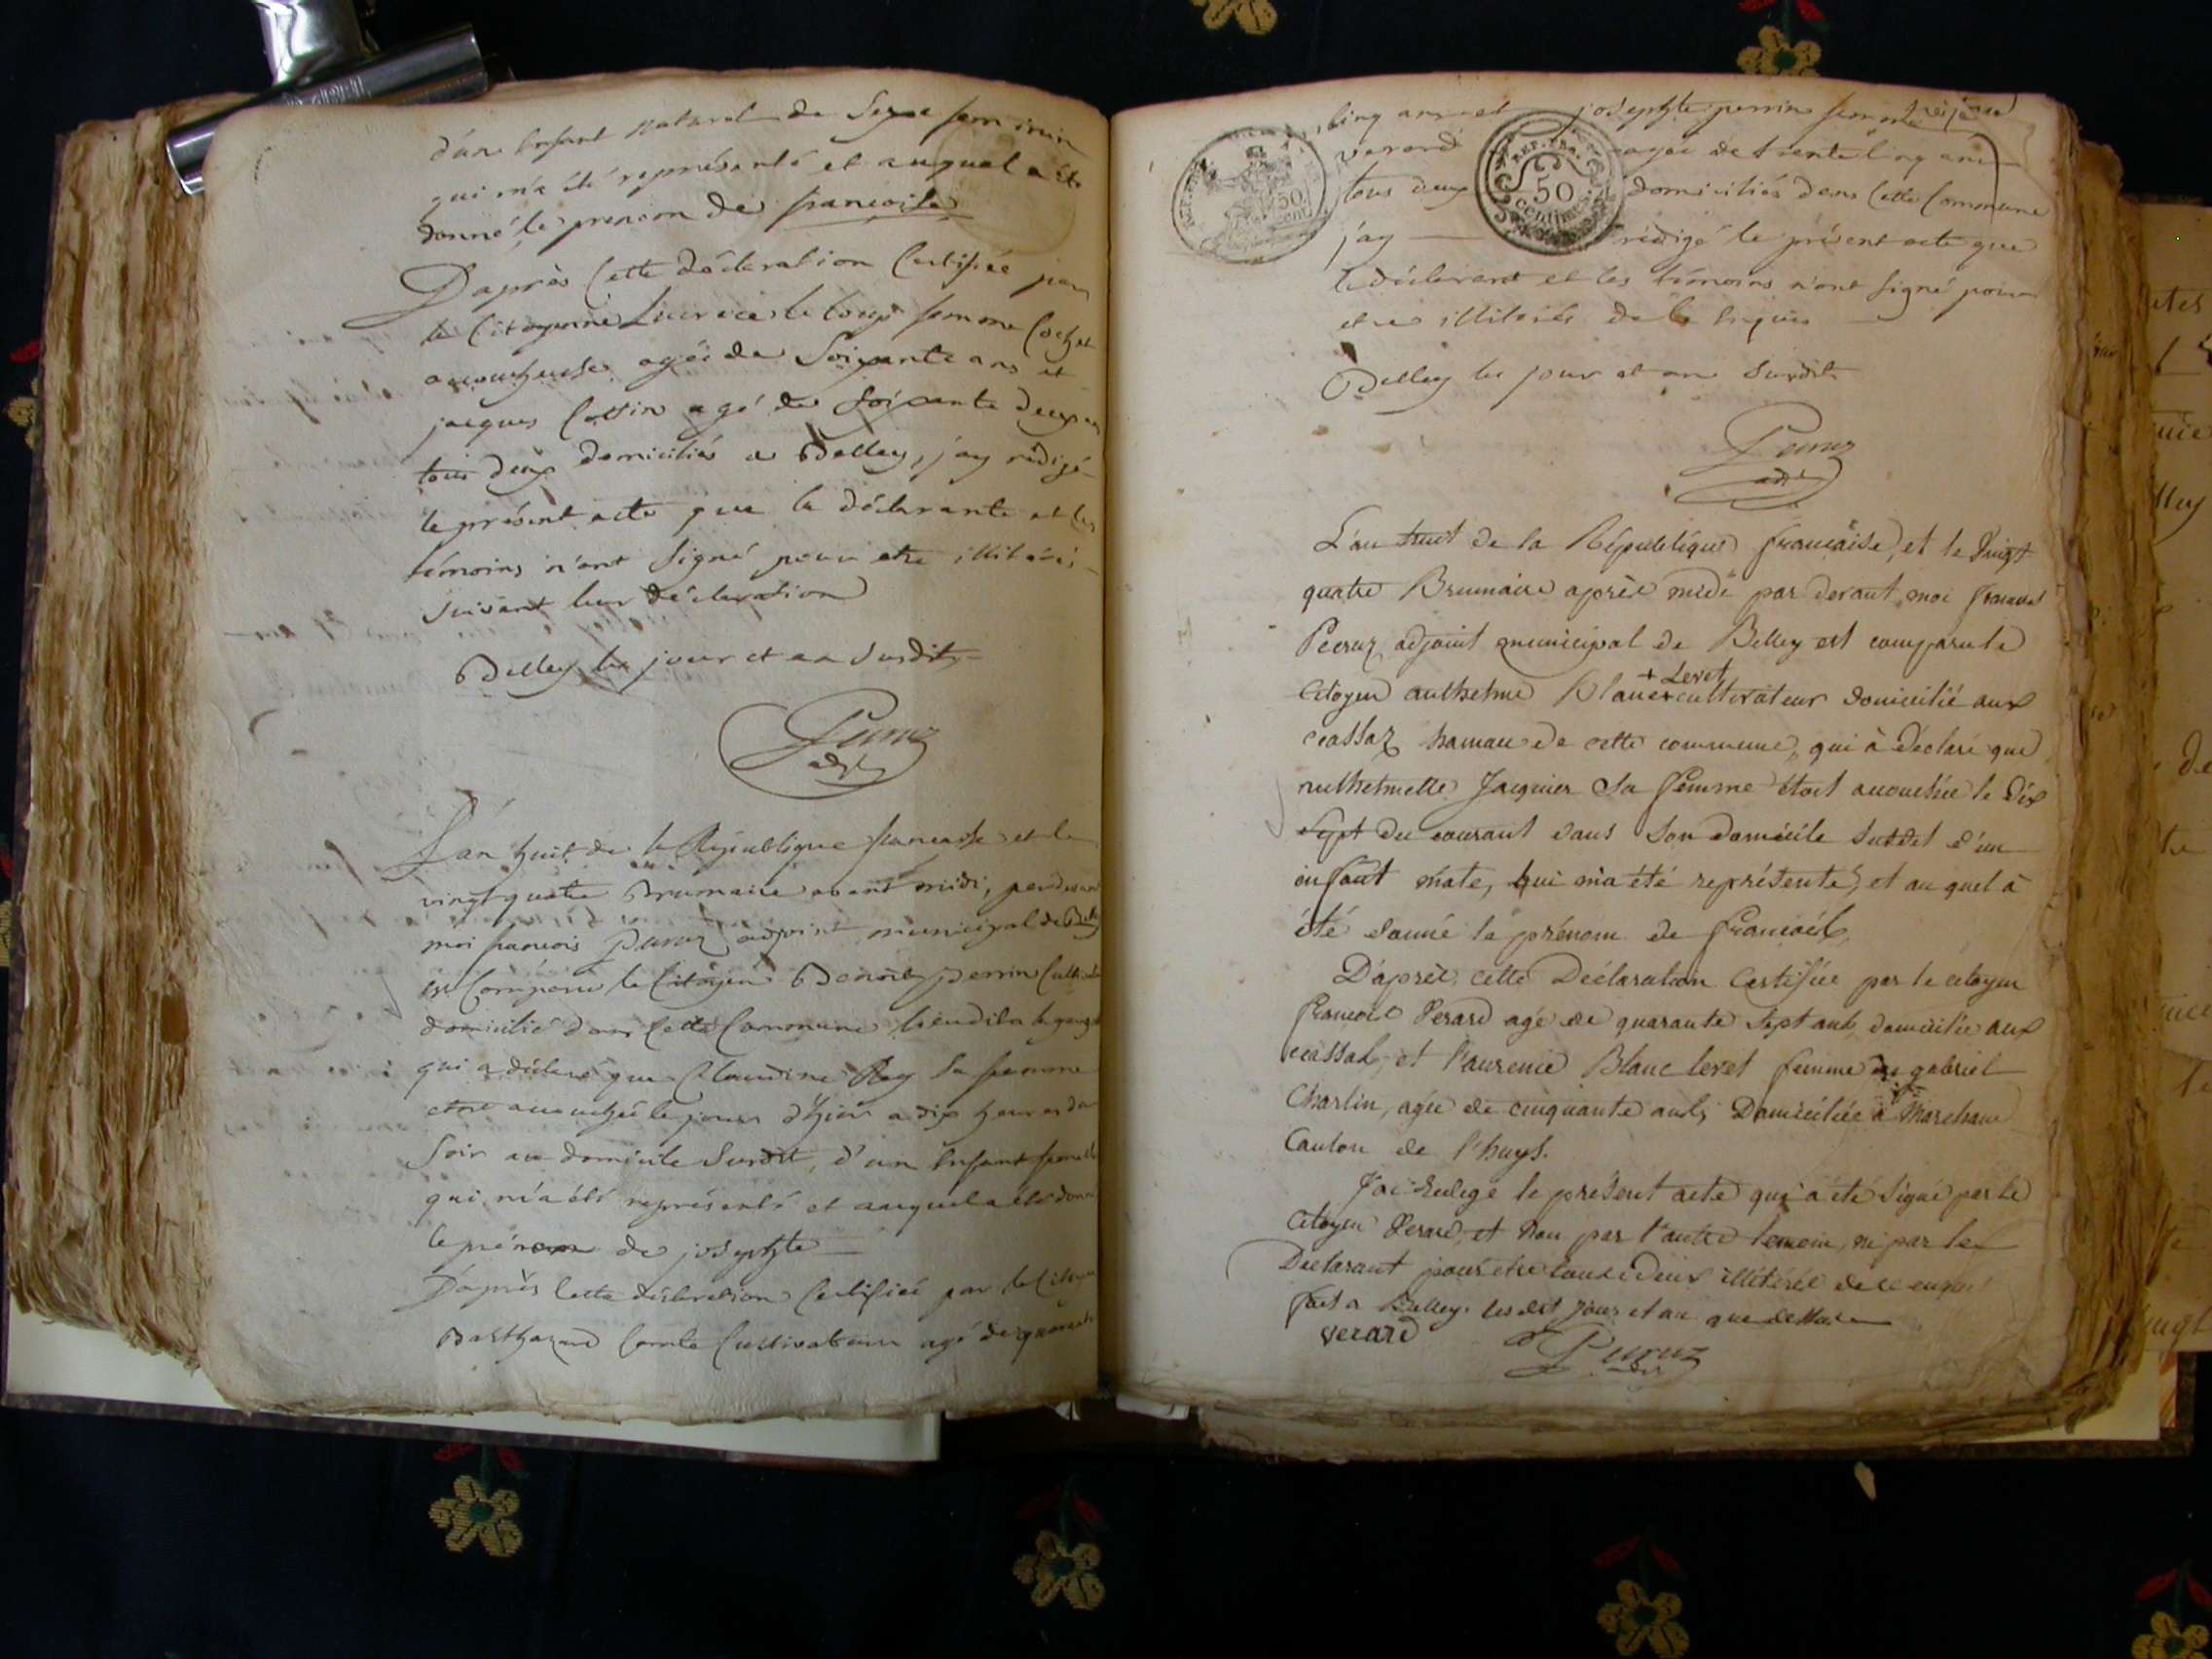 d'un Enfant naturel de Sexe feminin
qui m'a été représenté et auquel a été
donné le prenom de francoise
D'après Cette déclaration Certifiée par
la Citoyenne Lucrèce le Loup femme Cochet
acouscheuse agée de Soixante ans et
jacques Cottin agé de Soixante deux ans
tous deux domiciliés a Belley, j'ay rédigé
le présent acte que la déclarante et les
témoins n'ont Signé pour etre illiterés
suivant leur déclaration
Belley les jour et an Susdits
Peruz
adjt
L'an huit de la République francaise et le
vingt quatre Brumaire avant midi, pardevant
moi francois Peruz adjoint municipal de Belley
est Comparu le Citoyen Benoit perrin Cultivateur
domicilié dans Cette Commune
qui a déclaré que Claudine Rey Sa femme
etoit accouchée le jour d'hier a dix heures du
Soir au domicile Susdit, d'un Enfant femelle
qui m'a été représenté et auquel a été donné
le prénom de josephte
D'après Cette déclaration Certifiée par le Citoyen
Balthazard Comte Cultivateur agé de quarante
Cinq ans et josephte perrin femme
verard agée de trente Cinq ans
tous deux domiciliés dans Cette Commune
j'ay rédigé le présent acte que
le déclarant et les témoins n'ont signé pour
etre illiterés de Ce Enquis
Belley les jour et an Susdits
REP. FRA.
50
centimes
50
cent
Peruz
adjt
L'an huit de la République française, et le Vingt
quatre Brumaire après midi par devant moi francois
Peeruz adjoint municipal de Belley est comparu le
+ Levet
Citoyen anthelme Blanc + cultivateur domicilié aux
ecassaz hamau de cette commune, qui à déclaré que
anthelmette Jaquier Sa femme étoit accouchée le dix
sept du courant dans son domicile susdit d'un
enfant mâle, qui m'a été représenté, et au quel à
été donné le prénom de françois,
D'après cette Déclaration Certifiée par le citoyen
François Verard agé de quarante sept ans domicilié aux
ecassas, et Laurence Blanc levet femme de gabriel
Charlin, agée de cinquante ans, Domiciliée à Marchand
Canton de l'huys.
J'ai redigé le présent acte qui a été signé par le
Citoyen Verard, et non par l'autre temoin, ni par le
Declarant pour être tous deux illitérés de ce enquis
fait a Belley les dit jour et an que dessus
verard
Peruz
adjt